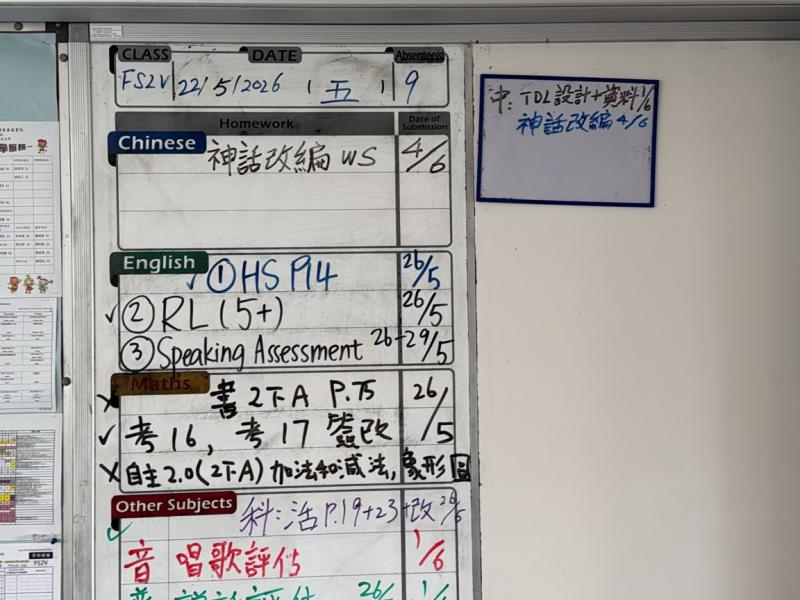 CLASS DATE Absentee(s)
FS2V 22/5/2026 (五) 9
Homework Date of Submission
Chinese 神話改編 WS 4/6
English ①HS P14 26/5
✓ ②RL (5+) 26/5
③Speaking Assessment 26-29/5
Maths 書 2下A P.75 26/5
✓ 考16, 考17 簽改
X 自主2.0(2下A) 加法和減法, 象形圖
Other Subjects 科:活P.19+23+改 26/5
音 唱歌評估 1/6
26/ 1/
中: TDL設計+資料 1/6
神話改編 4/6
學服務
FS2V